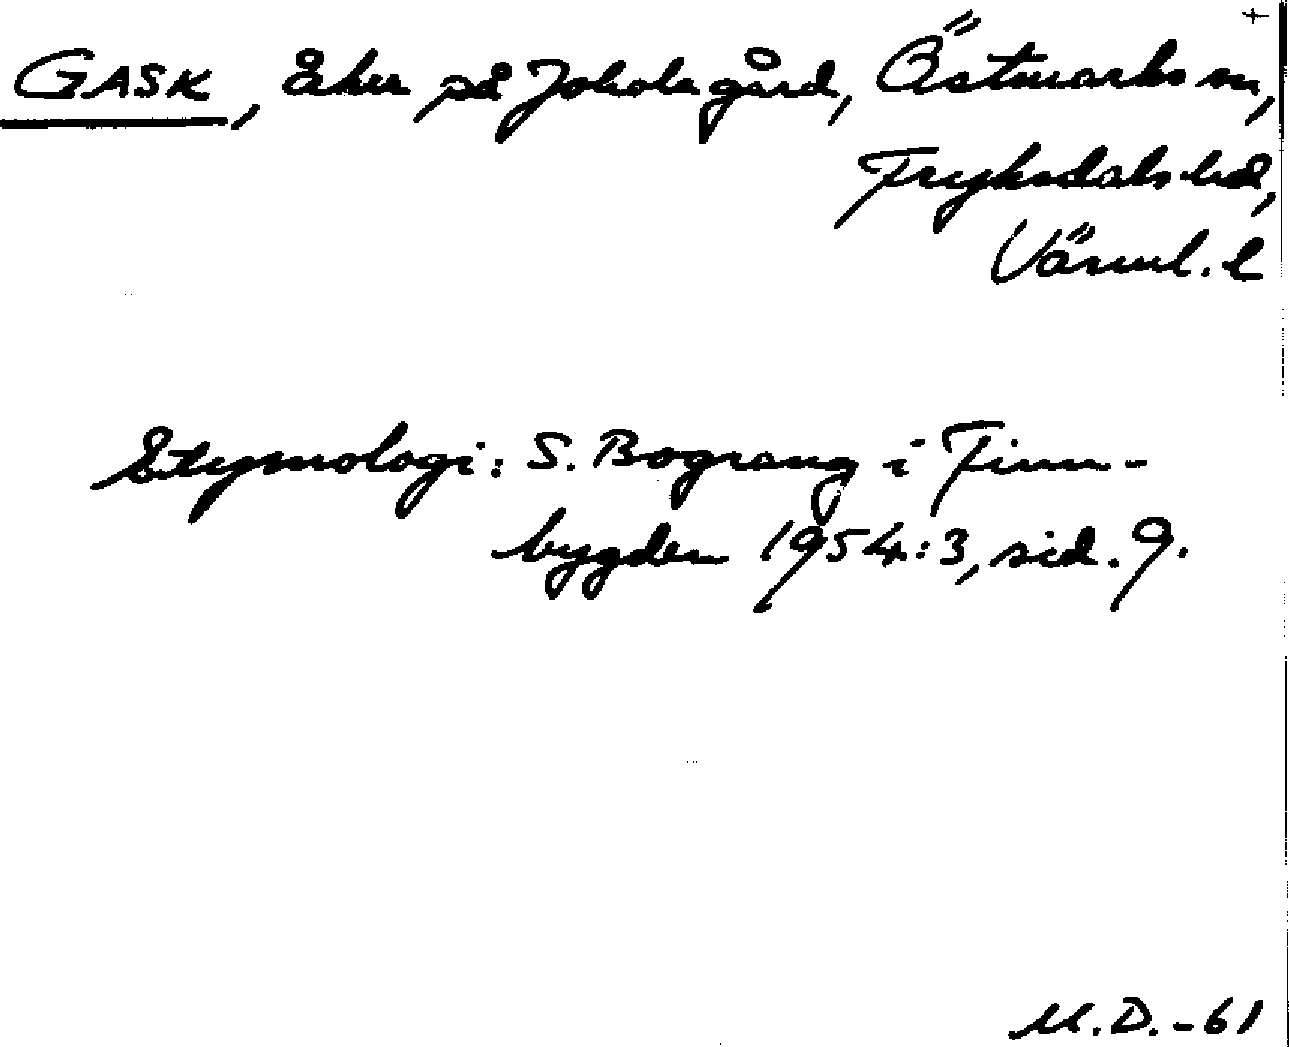 +
GASK, åker på Jokola gård, Östmarks sn,
Fryksdals hd,
Värml. l
Etymologi: S. Bograng i Finn-
bygden 1954:3, sid. 9.
M.D.-61